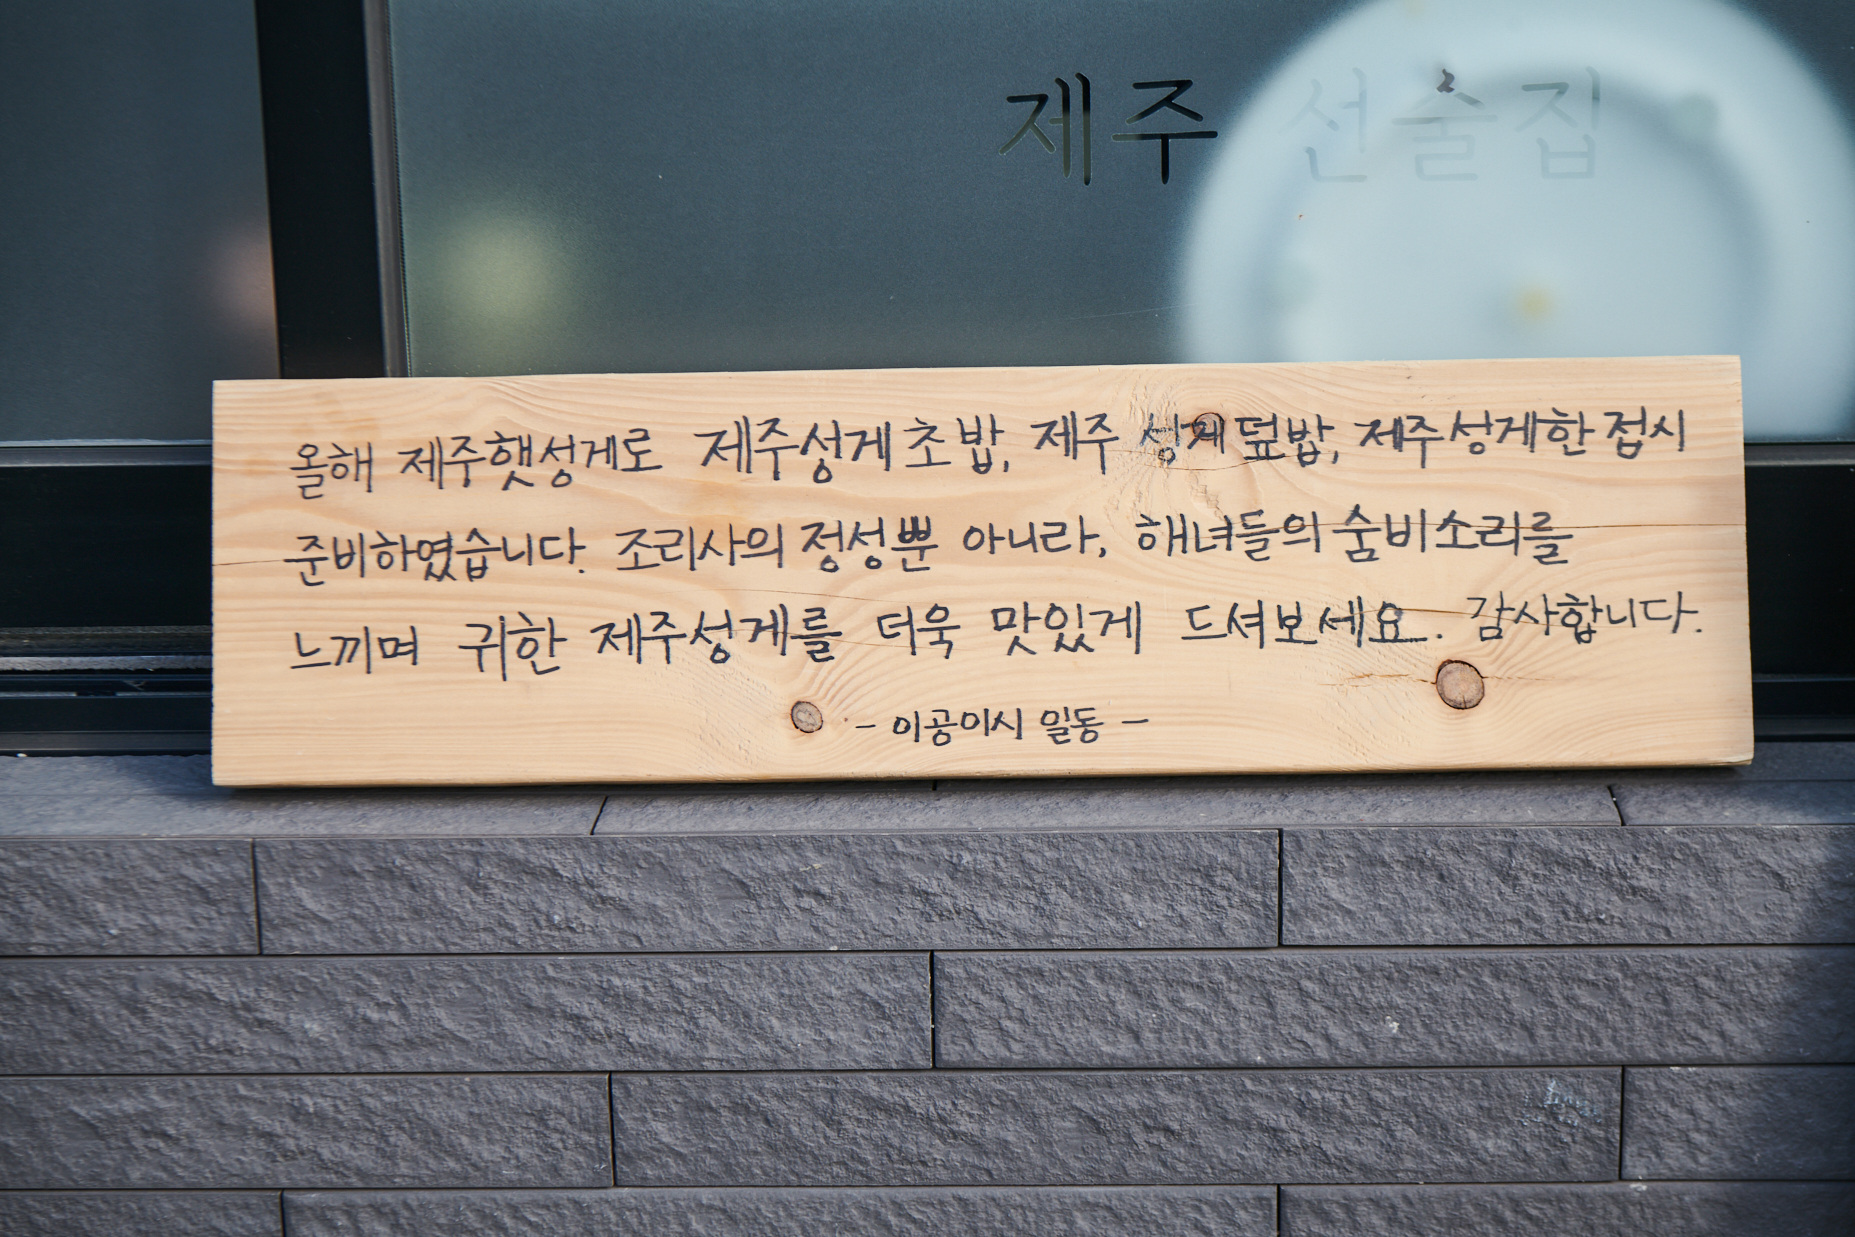 제주 선술집
올해 제주햇성게로 제주성게초밥, 제주 성게덮밥, 제주성게한접시
준비하였습니다. 조리사의 정성뿐 아니라, 해녀들의 숨비소리를
느끼며 귀한 제주성게를 더욱 맛있게 드셔보세요. 감사합니다.
- 이공이시 일동 -